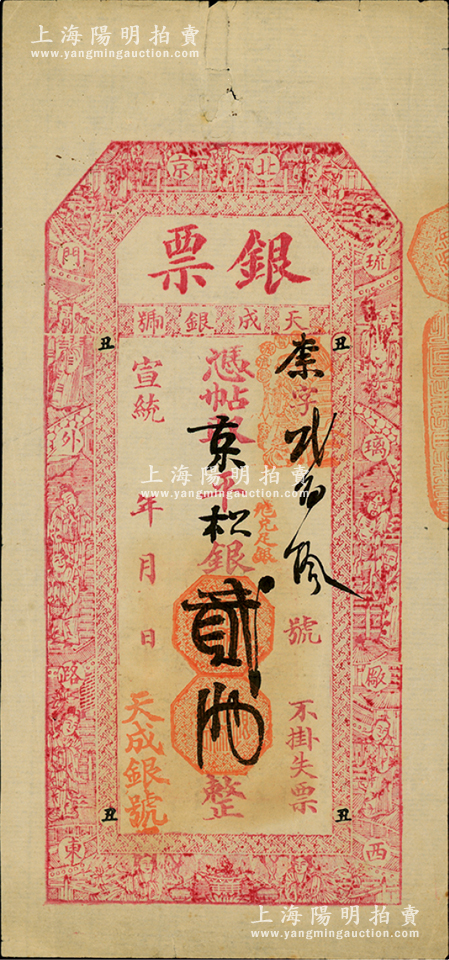 上海陽明拍賣
www.yangmingauction.com
北京
銀票
天成銀號
琉璃廠西
門外路東
丑
丑
柰字貳百 號
不掛失票
憑帖取京平松銀貳兩整
宣統 年 月 日
天成銀號
丑
丑
上海陽明拍賣
www.yangmingauction.com
上海陽明拍賣
www.yangmingauction.com